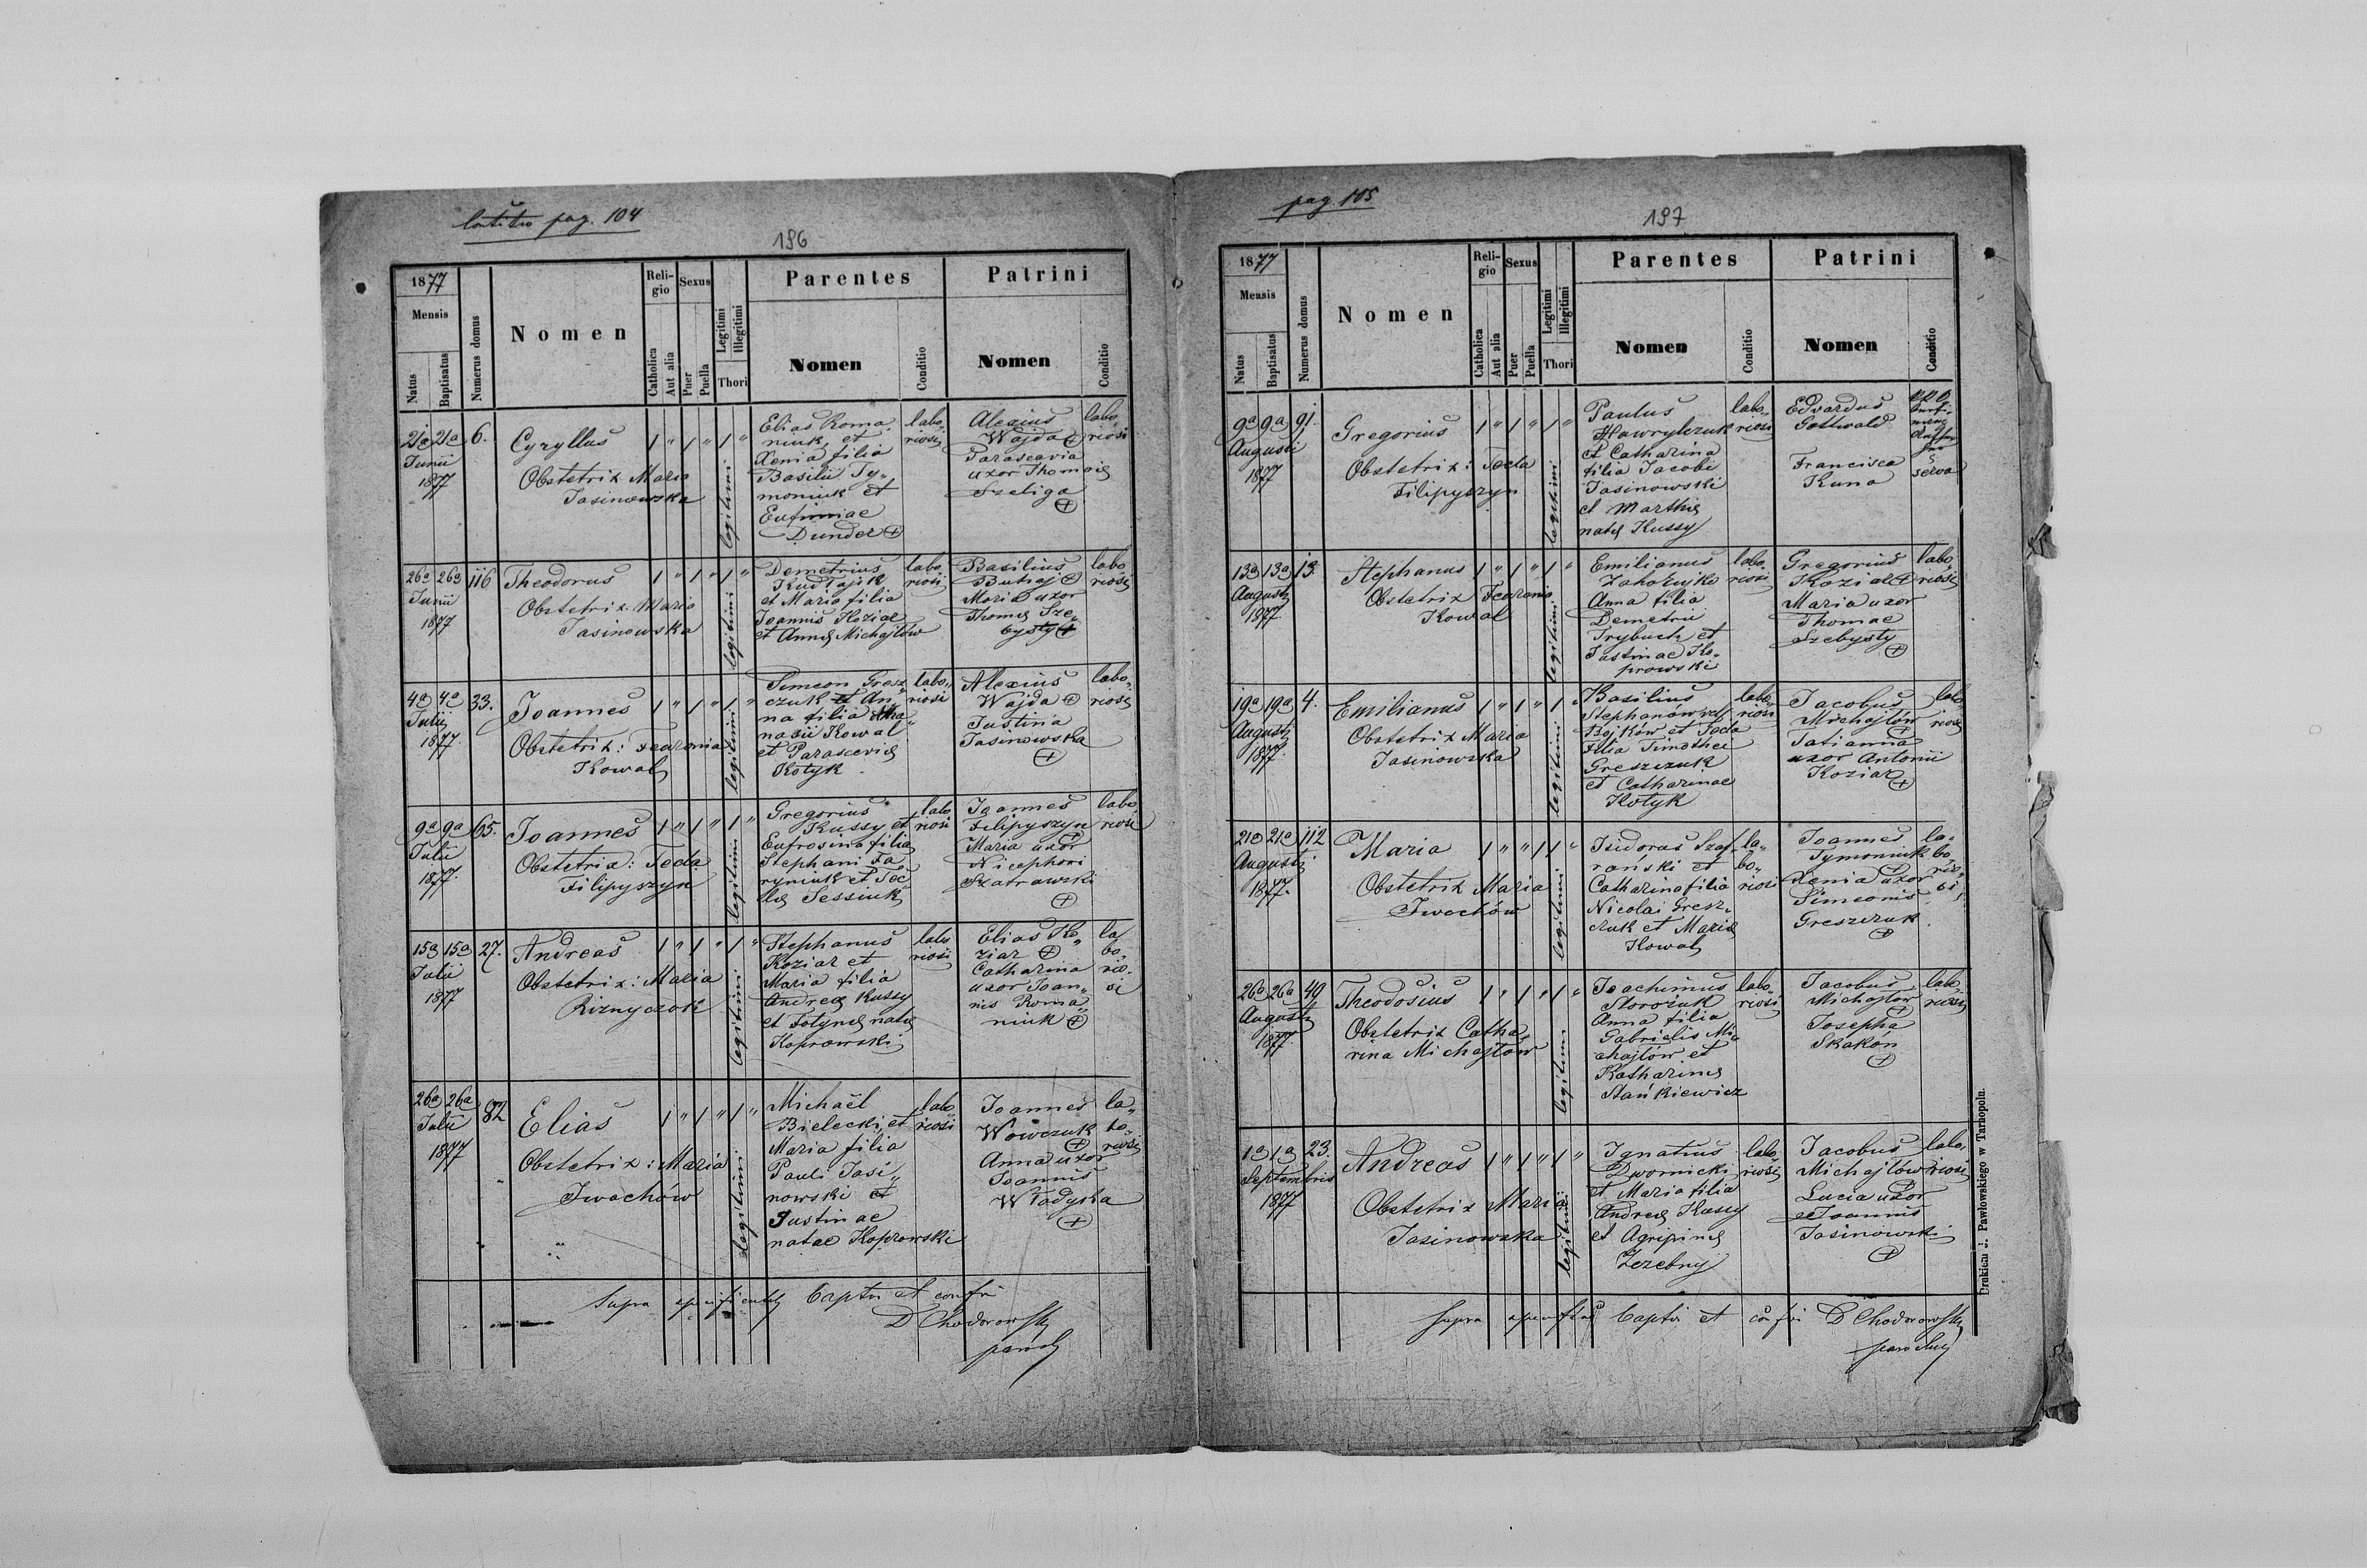 pag. 104
196
1877
Mensis
Natus
Baptisatus
Numerus domus
Nomen
Religio
Catholica
Aut alia
Sexus
Puer
Puella
Legitimi
Illegitimi
Thori
Parentes
Nomen
Conditio
Patrini
Nomen
Conditio
21a 21a 6.
Junii
1877
Cyryllus
Obstetrix Maria
Jasinowska
1 " 1 " 1 "
legitimi
Elias Roma„
niuk et
Xenia filia
Basilii Ty„
moniuk et
Eufimiae
Dunder +
labo„
riosi
Alexius
Wajda +
Parascevia
uxor Thomae
Szeliga
+
labo„
riosi
26a 26a 116
Junii
1877
Theodorus
Obstetrix Maria
Jasinowska
1 " 1 " 1 "
legitimi
Demetrius
Kudłajik
et Maria filia
Joannis Koziar
et Annae Michajłów
labo
riosi
Basilius
Buhaj +
Maria uxor
Thomae Sze„
bysty +
labo
riosi
4a 4a 33.
Julii
1877.
Joannes
Obstetrix: Fevronia
Kowal
1 " 1 " 1 "
legitimi
Simeon Gresz„
czuk et An„
na filia Atha„
nasii Kowal
et Parasceviae
Kotyk
labo„
riosi
Alexius
Wajda +
Justina
Jasinowska
+
labo„
riosi
9a 9a 65.
Julii
1877.
Joannes
Obstetrix: Tecla
Filipyszyn
1 " 1 " 1 "
legitimi
Gregorius
Kussy et
Eufrosina filia
Stephani Fa„
ryniuk et Tec„
lae Sessiuk
labo
riosi
Joannes
Filipyszyn
+
Maria uxor
Nicephori
Szatrawski
+
labo
riosi
15a 15a 27.
Julii
1877
Andreas
Obstetrix: Maria
Riznyczok
1 " 1 " 1 "
legitimi
Stephanus
Koziar et
Maria filia
Andreae Kussy
et Fotynae natae
Koprowski
labo
riosi
Elias Ko„
ziar +
Catharina
uxor Joan„
nis Roma„
niuk +
la
bo„
rio„
si
26a 26a 82
Julii
1877
Elias
Obstetrix: Maria
Iwachów
1 " 1 " 1 "
legitimi
Michaël
Bielecki et
Maria filia
Pauli Jasi„
nowski et
Justinae
natae Koprowski
labo
riosi
Joannes
Wowczuk
+
Anna uxor
Joannis
Władyka
+
la„
bo„
riosi
Supra Baptis et confr
D Chodorowsky
paroch
pag. 105
197
1877
Mensis
Natus
Baptisatus
Numerus domus
Nomen
Religio
Catholica
Aut alia
Sexus
Puer
Puella
Legitimi
Illegitimi
Thori
Parentes
Nomen
Conditio
Patrini
Nomen
Conditio
9a 9a 91.
Augusti
1877
Gregorius
Obstetrix: Tecla
Filipyszyn
1 " 1 " 1 "
legitimi
Paulus
Hawrylczuk
et Catharina
filia Jacobi
Jasinowski
et Marthae
natae Kussy
labo„
riosi
Edvardus
Gottwald
Francisca
Kuna
serva
13a 13a 13.
Augusti
1877
Stephanus
Obstetrix Fevronia
Kowal
1 " 1 " 1 "
legitimi
Emilianus
Zahorujko
Anna filia
Demetrii
Trybuch et
Justinae Ko„
prowski
labo„
riosi
Gregorius
Koziar +
Maria uxor
Thomae
Szebysty
+
labo„
riosi
19a 19a 4.
Augusti
1877.
Emilianus
Obstetrix Maria
Jasinowska
1 " 1 " 1 "
legitimi
Basilius
Stephanów vel
Bojków et Tecla
filia Timothei
Greszczuk
et Catharinae
Kotyk
labo„
riosi
Jacobus
Michajłów
+
Tatianna
uxor Antonii
Koziar
+
labo
riosi
21a 21a 112
Augusti
1877.
Maria
Obstetrix Maria
Iwachów
1 " " 1 1 "
legitimi
Isidorus Szaf„
rański et
Catharina filia
Nicolai Gresz„
czuk et Mariae
Kowal
la„
bo„
riosi
Joannes
Tymoniuk
+
Xenia uxor
Simeonis
Greszczuk
+
la„
bo„
rio„
si
26a 26a 49
Augusti
1877.
Theodosius
Obstetrix Catha„
rina Michajłów
1 " 1 " 1 "
legitimi
Joachimus
Storożuk
Anna filia
Gabrielis Mi„
chajlów et
Katharinae
Stańkiewicz
labo„
riosi
Jacobus
Michajłów
+
Josepha
Skakon
+
labo„
riosi
1a 1a 23.
Septembris
1877
Andreas
Obstetrix Maria
Jasinowska
1 " 1 " 1 "
legitimi
Ignatius
Dwornicki
et Maria filia
Andreae Kussy
et Agripinae
Zezebny
labo„
riosi
Jacobus
Michajłów
+
Lucia uxor
Joannis
Jasinowski
+
labo„
riosi
Supra Baptis et confr D Chodorowsky
parochus
Drukiem J. Pawłowskiego w Tarnopolu.